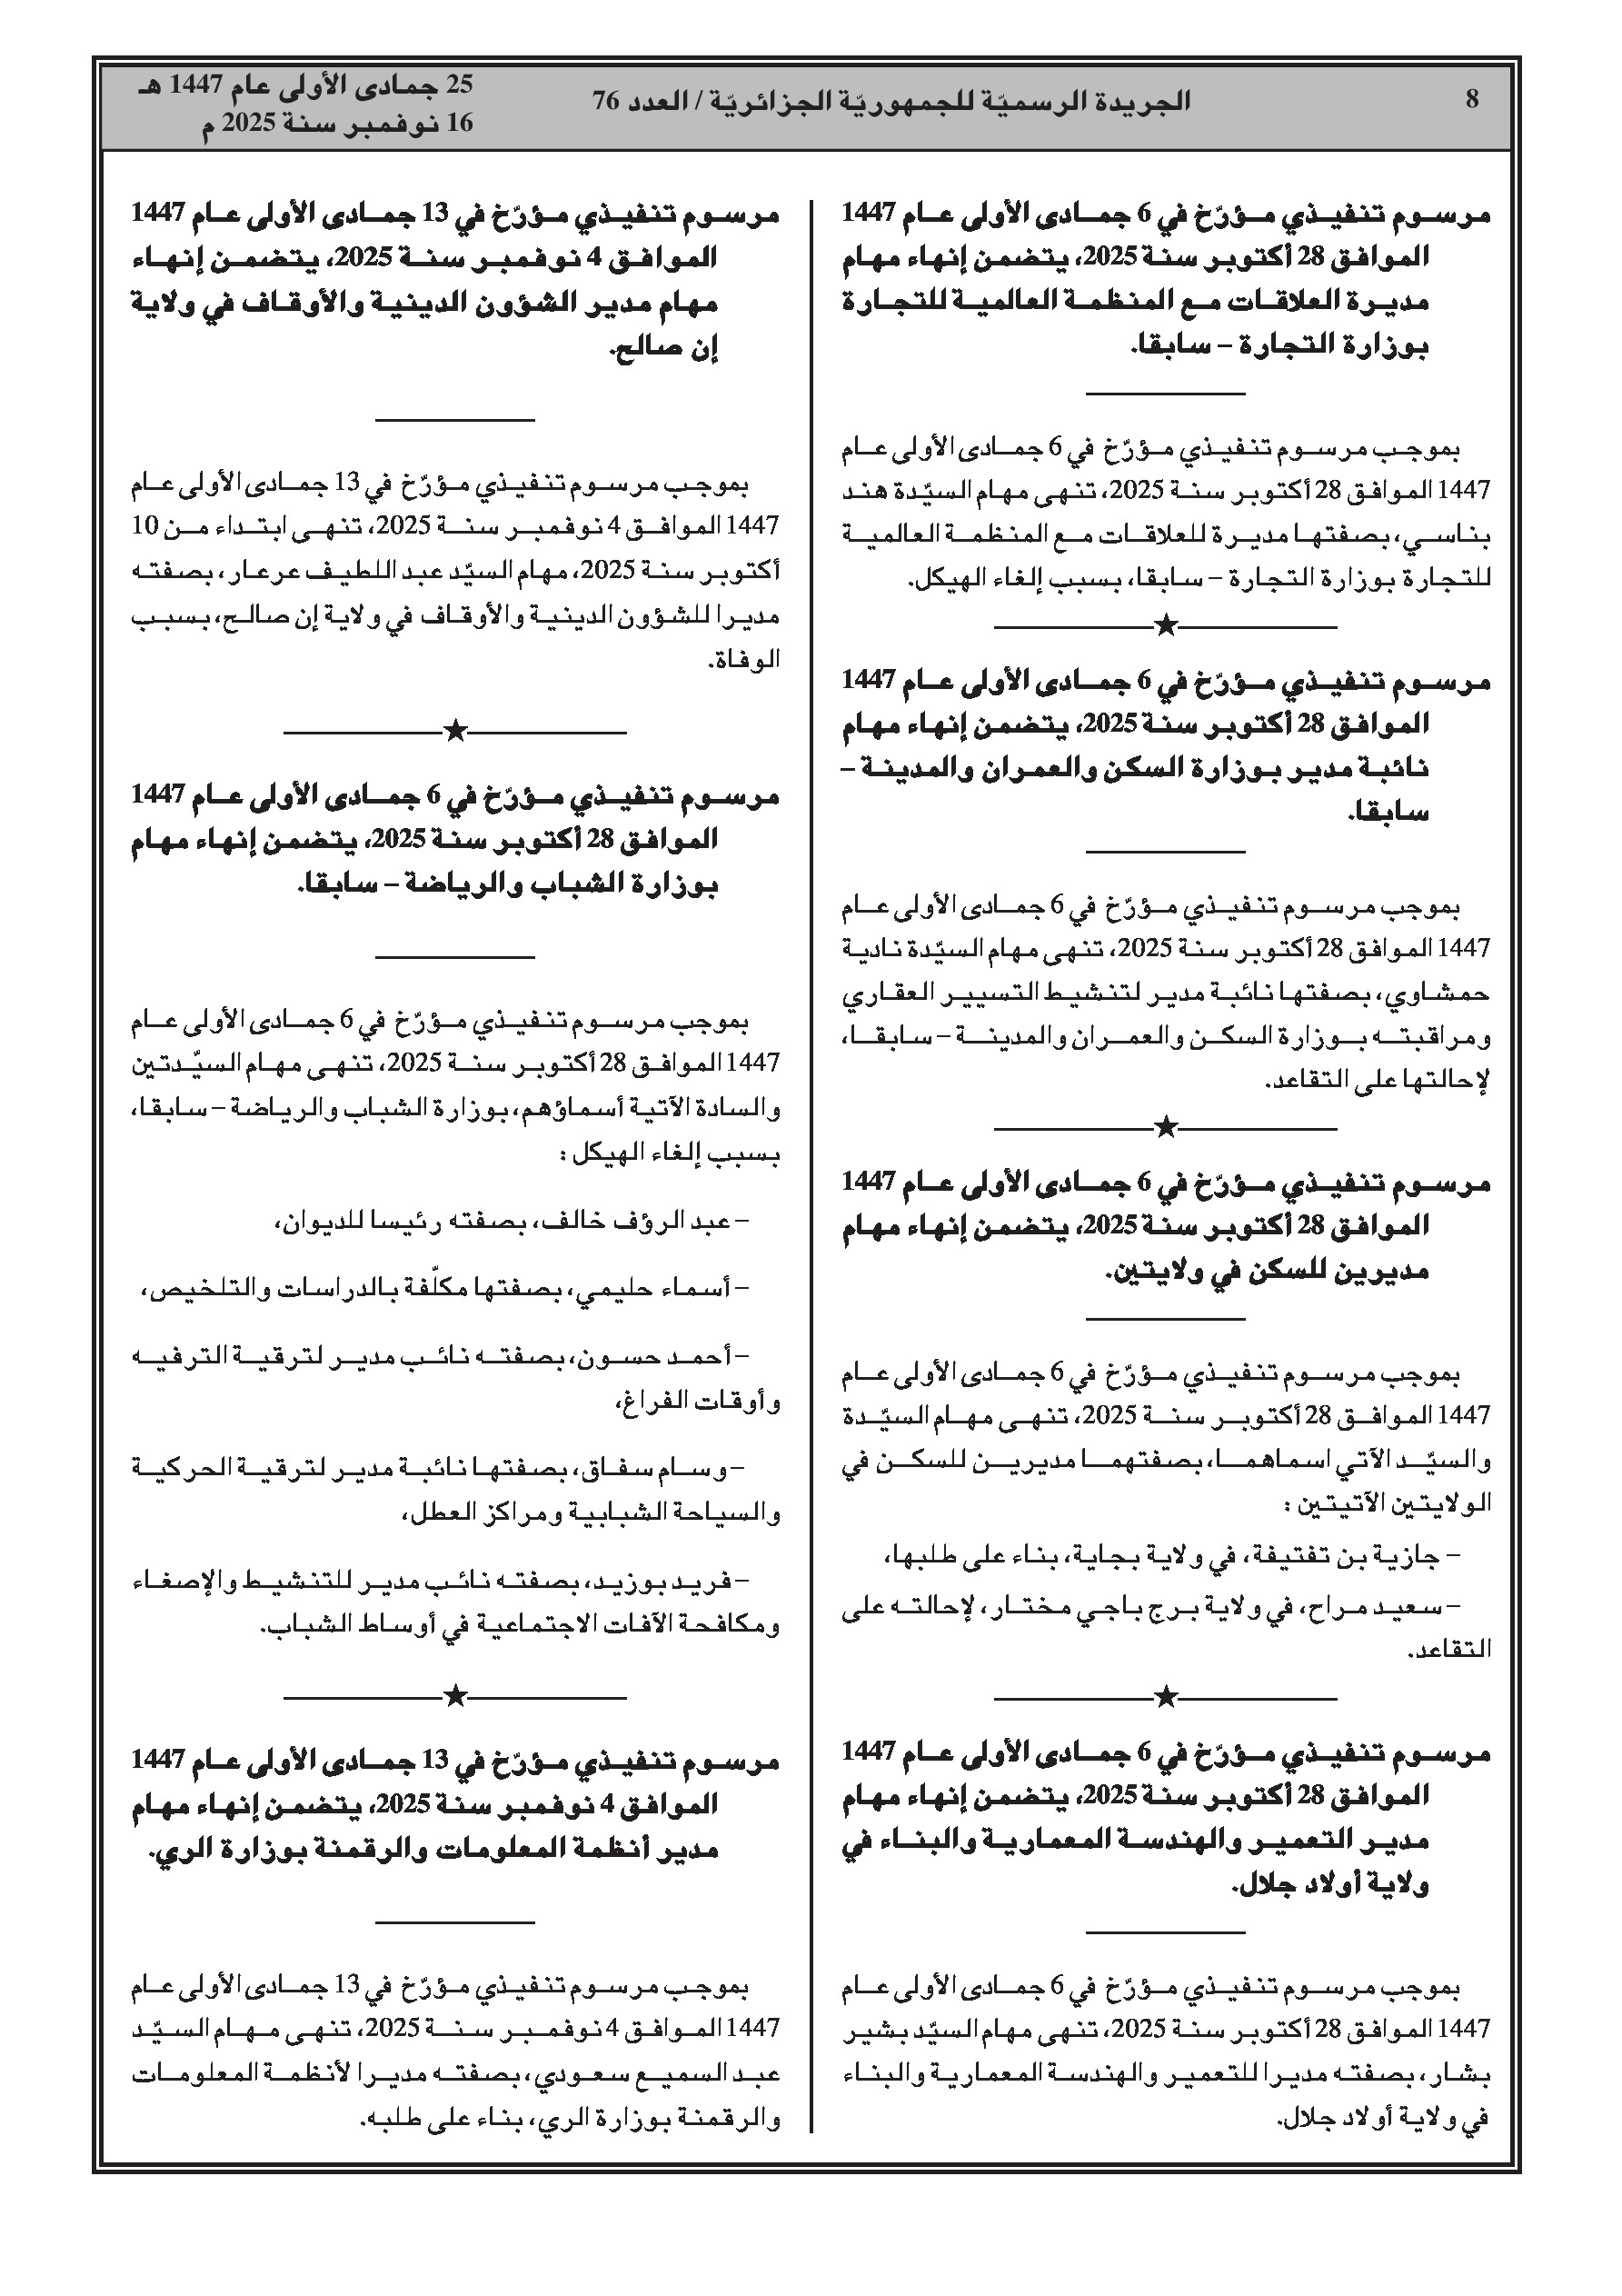 8
الجريدة الرسميّة للجمهوريّة الجزائريّة / العدد 76
25 جمادى الأولى عام 1447 هـ
16 نوفمبر سنة 2025 م
مرسوم تنفيذي مؤرّخ في 6 جمادى الأولى عام 1447
الموافق 28 أكتوبر سنة 2025، يتضمن إنهاء مهام
مديرة العلاقات مع المنظمة العالمية للتجارة
بوزارة التجارة – سابقا.
بموجب مرسوم تنفيذي مؤرّخ في 6 جمادى الأولى عام
1447 الموافق 28 أكتوبر سنة 2025، تنهى مهام السيّدة هند
بناسي، بصفتها مديرة للعلاقات مع المنظمة العالمية
للتجارة بوزارة التجارة – سابقا، بسبب إلغاء الهيكل.
مرسوم تنفيذي مؤرّخ في 6 جمادى الأولى عام 1447
الموافق 28 أكتوبر سنة 2025، يتضمن إنهاء مهام
نائبة مدير بوزارة السكن والعمران والمدينة –
سابقا.
بموجب مرسوم تنفيذي مؤرّخ في 6 جمادى الأولى عام
1447 الموافق 28 أكتوبر سنة 2025، تنهى مهام السيّدة نادية
حمشاوي، بصفتها نائبة مدير لتنشيط التسيير العقاري
ومراقبته بوزارة السكن والعمران والمدينة – سابقا،
لإحالتها على التقاعد.
مرسوم تنفيذي مؤرّخ في 6 جمادى الأولى عام 1447
الموافق 28 أكتوبر سنة 2025، يتضمن إنهاء مهام
مديرين للسكن في ولايتين.
بموجب مرسوم تنفيذي مؤرّخ في 6 جمادى الأولى عام
1447 الموافق 28 أكتوبر سنة 2025، تنهى مهام السيّدة
والسيّد الآتي اسماهما، بصفتهما مديرين للسكن في
الولايتين الآتيتين :
– جازية بن تفتيفة، في ولاية بجاية، بناء على طلبها،
– سعيد مراح، في ولاية برج باجي مختار، لإحالته على
التقاعد.
مرسوم تنفيذي مؤرّخ في 6 جمادى الأولى عام 1447
الموافق 28 أكتوبر سنة 2025، يتضمن إنهاء مهام
مدير التعمير والهندسة المعمارية والبناء في
ولاية أولاد جلال.
بموجب مرسوم تنفيذي مؤرّخ في 6 جمادى الأولى عام
1447 الموافق 28 أكتوبر سنة 2025، تنهى مهام السيّد بشير
بشار، بصفته مديرا للتعمير والهندسة المعمارية والبناء
في ولاية أولاد جلال.
مرسوم تنفيذي مؤرّخ في 13 جمادى الأولى عام 1447
الموافق 4 نوفمبر سنة 2025، يتضمن إنهاء
مهام مدير الشؤون الدينية والأوقاف في ولاية
إن صالح.
بموجب مرسوم تنفيذي مؤرّخ في 13 جمادى الأولى عام
1447 الموافق 4 نوفمبر سنة 2025، تنهى ابتداء من 10
أكتوبر سنة 2025، مهام السيّد عبد اللطيف عرعار، بصفته
مديرا للشؤون الدينية والأوقاف في ولاية إن صالح، بسبب
الوفاة.
مرسوم تنفيذي مؤرّخ في 6 جمادى الأولى عام 1447
الموافق 28 أكتوبر سنة 2025، يتضمن إنهاء مهام
بوزارة الشباب والرياضة – سابقا.
بموجب مرسوم تنفيذي مؤرّخ في 6 جمادى الأولى عام
1447 الموافق 28 أكتوبر سنة 2025، تنهى مهام السيّدتين
والسادة الآتية أسماؤهم، بوزارة الشباب والرياضة – سابقا،
بسبب إلغاء الهيكل :
– عبد الرؤف خالف، بصفته رئيسا للديوان،
– أسماء حليمي، بصفتها مكلّفة بالدراسات والتلخيص،
– أحمد حسون، بصفته نائب مدير لترقية الترفيه
وأوقات الفراغ،
– وسام سفاق، بصفتها نائبة مدير لترقية الحركية
والسياحة الشبابية ومراكز العطل،
– فريد بوزيد، بصفته نائب مدير للتنشيط والإصغاء
ومكافحة الآفات الاجتماعية في أوساط الشباب.
مرسوم تنفيذي مؤرّخ في 13 جمادى الأولى عام 1447
الموافق 4 نوفمبر سنة 2025، يتضمن إنهاء مهام
مدير أنظمة المعلومات والرقمنة بوزارة الري.
بموجب مرسوم تنفيذي مؤرّخ في 13 جمادى الأولى عام
1447 الموافق 4 نوفمبر سنة 2025، تنهى مهام السيّد
عبد السميع سعودي، بصفته مديرا لأنظمة المعلومات
والرقمنة بوزارة الري، بناء على طلبه.